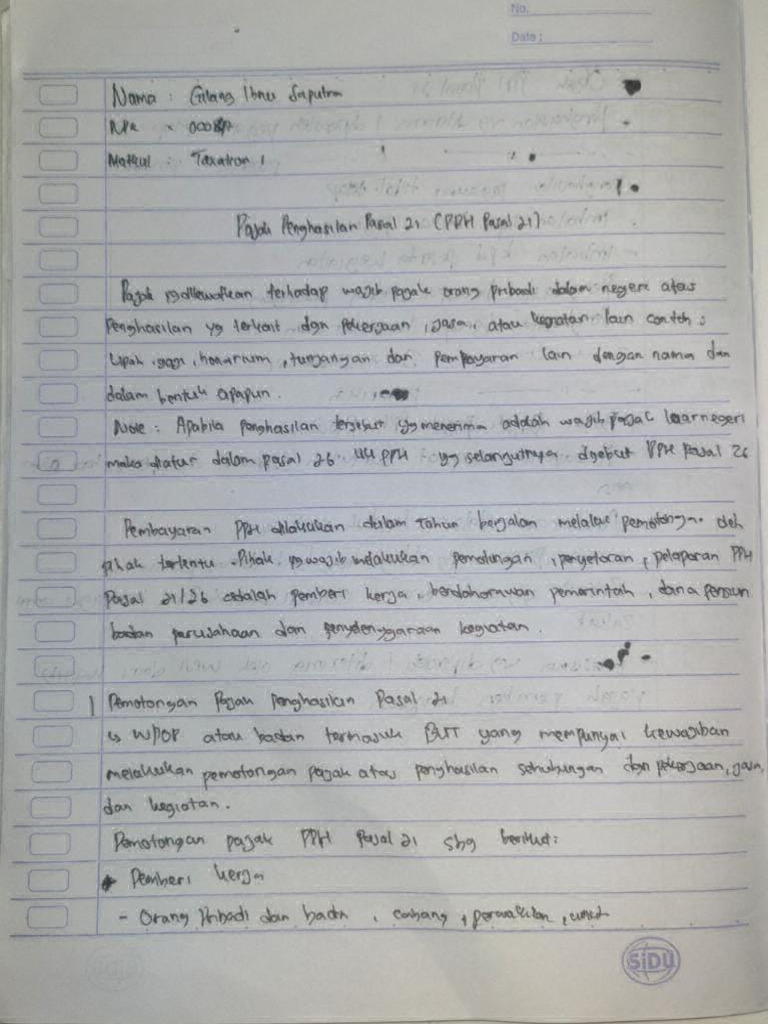 No.
Date :
Nama : Gilang Ibnu Saputra
Matkul : Taxation 1
Pajak Penghasilan Pasal 21 (PPH Pasal 21)
Pajak yg dikewafkan terhadap wajib pajak orang pribadi dalam negeri atas
Penghasilan yg terkait dgn pekerjaan, jasa, atau kegiatan lain contoh :
Upah, gaji, honarium, tunjangan dan pembayaran lain dengan nama dan
dalam bentuk apapun.
Note : Apabila penghasilan tersebut yg menerima adalah wajib pajak luar negeri
maka diatur dalam pasal 26 UU PPH yg selanjutnya disebut PPH Pasal 26
Pembayaran PPH dilakukan dalam tahun berjalan melalui pemotongan oleh
pihak tertentu. Pihak yg wajib melakukan pemotongan, penyetoran, pelaporan PPH
Pasal 21/26 adalah pemberi kerja, bendaharawan pemerintah, dana pensiun
badan perusahaan dan penyelenggaraan kegiatan.
1 Pemotongan Pajak penghasilan Pasal 21
↳ WPOP atau badan termasuk BUT yang mempunyai kewajiban
melakukan pemotongan pajak atas penghasilan sehubungan dgn pekerjaan, jasa,
dan kegiatan.
Pemotongan pajak PPH Pasal 21 sbg berikut:
Pemberi kerja
- Orang Pribadi dan badan, cabang, perwakilan, unit
SiDU